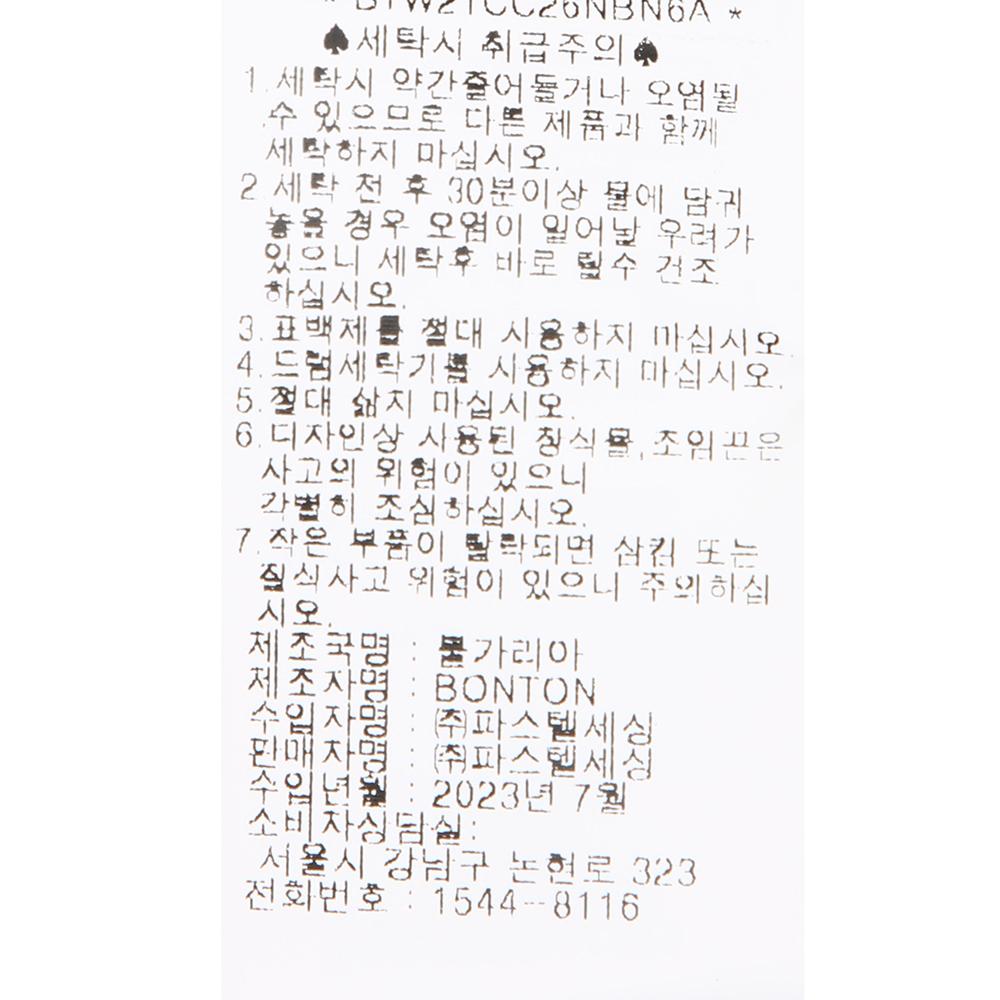 * BTW21CC26NBN6A *
♠세탁시 취급주의♠
1.세탁시 약간줄어들거나 오염될
수 있으므로 다른 제품과 함께
세탁하지 마십시오.
2.세탁 전 후 30분이상 물에 담궈
놓을 경우 오염이 일어날 우려가
있으니 세탁후 바로 탈수 건조
하십시오.
3.표백제를 절대 사용하지 마십시오.
4.드럼세탁기를 사용하지 마십시오.
5.절대 삶지 마십시오.
6.디자인상 사용된 장식물,조임끈은
사고의 위험이 있으니
각별히 조심하십시오.
7.작은 부품이 탈락되면 삼킴 또는
질식사고 위험이 있으니 주의하십
시오.
제조국명 : 불가리아
제조자명 : BONTON
수입자명 : ㈜파스텔세상
판매자명 : ㈜파스텔세상
수입년월 : 2023년 7월
소비자상담실:
서울시 강남구 논현로 323
전화번호 : 1544-8116